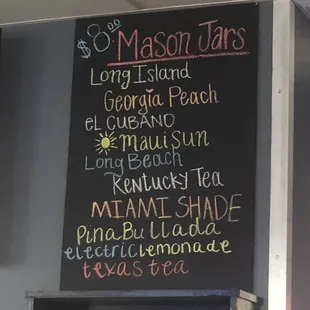 $8.00
Mason Jars
Long Island
Georgia Peach
eL CUBANO
Maui Sun
Long Beach
Kentucky Tea
MIAMI SHADE
Pina Bullada
electric lemonade
texas tea